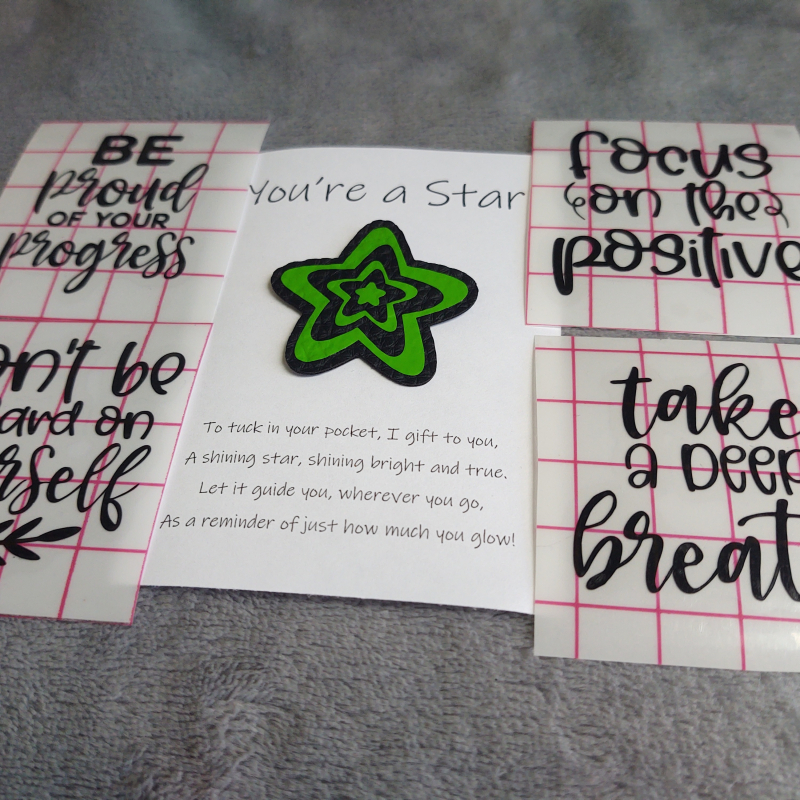 BE
proud
OF YOUR
progress
You're a Star
focus
on the
positive
on't be
ard on
rself
To tuck in your pocket, I gift to you,
A shining star, shining bright and true.
Let it guide you, wherever you go,
As a reminder of just how much you glow!
take
a DEEP
breat